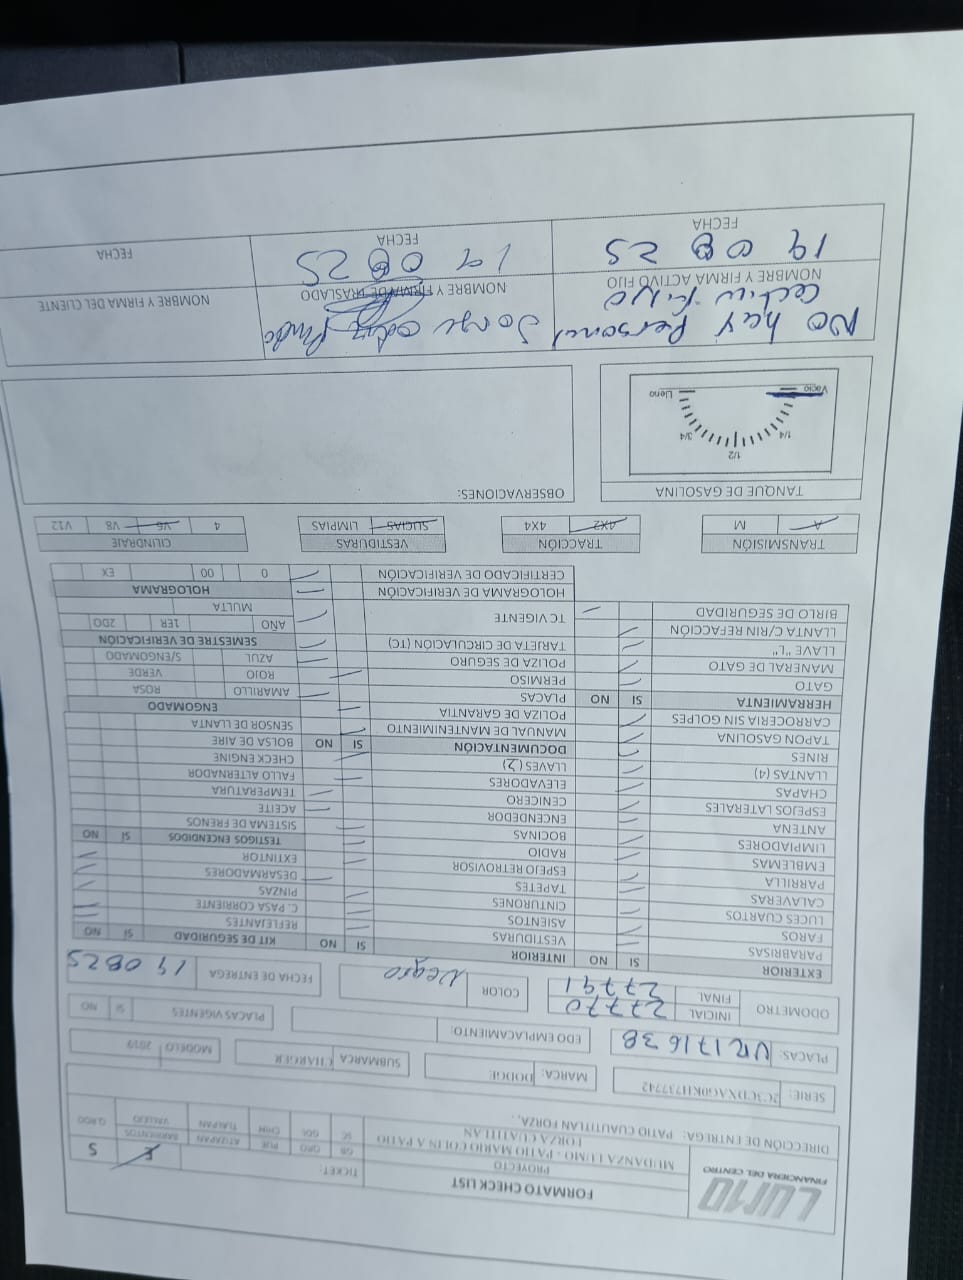 LUMO
FINANCIERA DEL CENTRO
FORMATO CHECK LIST
PROYECTO
MUDANZA LUMO - PATIO MARIO COLIN A PATIO
FORZA CUATITLAN
TICKET:
E S
GR QRO PUE ATIZAPAN BARRIENTOS
SC GDL CHIH TLALPAN VALLEJO Q.ROO
DIRECCIÓN DE ENTREGA: PATIO CUAUTITLAN FORZA, .
SERIE: 2C3CDXAG0KH737742 MARCA: DODGE SUBMARCA CHARGER MODELO 2019
PLACAS: UR171638 EDO EMPLACAMIENTO: PLACAS VIGENTES SI NO
ODOMETRO INICIAL 27770
FINAL 27791
COLOR Negro FECHA DE ENTREGA 19 08 25
EXTERIOR SI NO
PARABRISAS
FAROS
LUCES CUARTOS
CALAVERAS
PARRILLA
EMBLEMAS
LIMPIADORES
ANTENA
ESPEJOS LATERALES
CHAPAS
LLANTAS (4)
RINES
TAPON GASOLINA
CARROCERIA SIN GOLPES
HERRAMIENTA SI NO
GATO
MANERAL DE GATO
LLAVE "L"
LLANTA C/RIN REFACCIÓN
BIRLO DE SEGURIDAD
INTERIOR SI NO
VESTIDURAS
ASIENTOS
CINTURONES
TAPETES
ESPEJO RETROVISOR
RADIO
BOCINAS
ENCENDEDOR
CENICERO
ELEVADORES
LLAVES (2)
DOCUMENTACIÓN SI NO
MANUAL DE MANTENIMIENTO
POLIZA DE GARANTIA
PLACAS
PERMISO
POLIZA DE SEGURO
TARJETA DE CIRCULACIÓN (TC)
TC VIGENTE
HOLOGRAMA DE VERIFICACIÓN
CERTIFICADO DE VERIFICACIÓN
KIT DE SEGURIDAD SI NO
REFLEJANTES
C. PASA CORRIENTE
PINZAS
DESARMADORES
EXTINTOR
TESTIGOS ENCENDIDOS SI NO
SISTEMA DE FRENOS
ACEITE
TEMPERATURA
FALLO ALTERNADOR
CHECK ENGINE
BOLSA DE AIRE
SENSOR DE LLANTA
ENGOMADO
AMARILLO ROSA
ROJO VERDE
AZUL S/ENGOMADO
SEMESTRE DE VERIFICACIÓN
AÑO 1ER 2DO
MULTA
HOLOGRAMA
0 00 EX
TRANSMISIÓN TRACCIÓN VESTIDURAS CILINDRAJE
A M 4X2 4X4 SUCIAS LIMPIAS 4 V6 V8 V12
TANQUE DE GASOLINA
Vacio 1/4 1/2 3/4 Lleno
OBSERVACIONES:
No hay Personal
activo fijo
NOMBRE Y FIRMA ACTIVO FIJO
19 08 25
FECHA
Jorge
NOMBRE Y FIRMA DE TRASLADO
19 08 25
FECHA
NOMBRE Y FIRMA DEL CLIENTE
FECHA